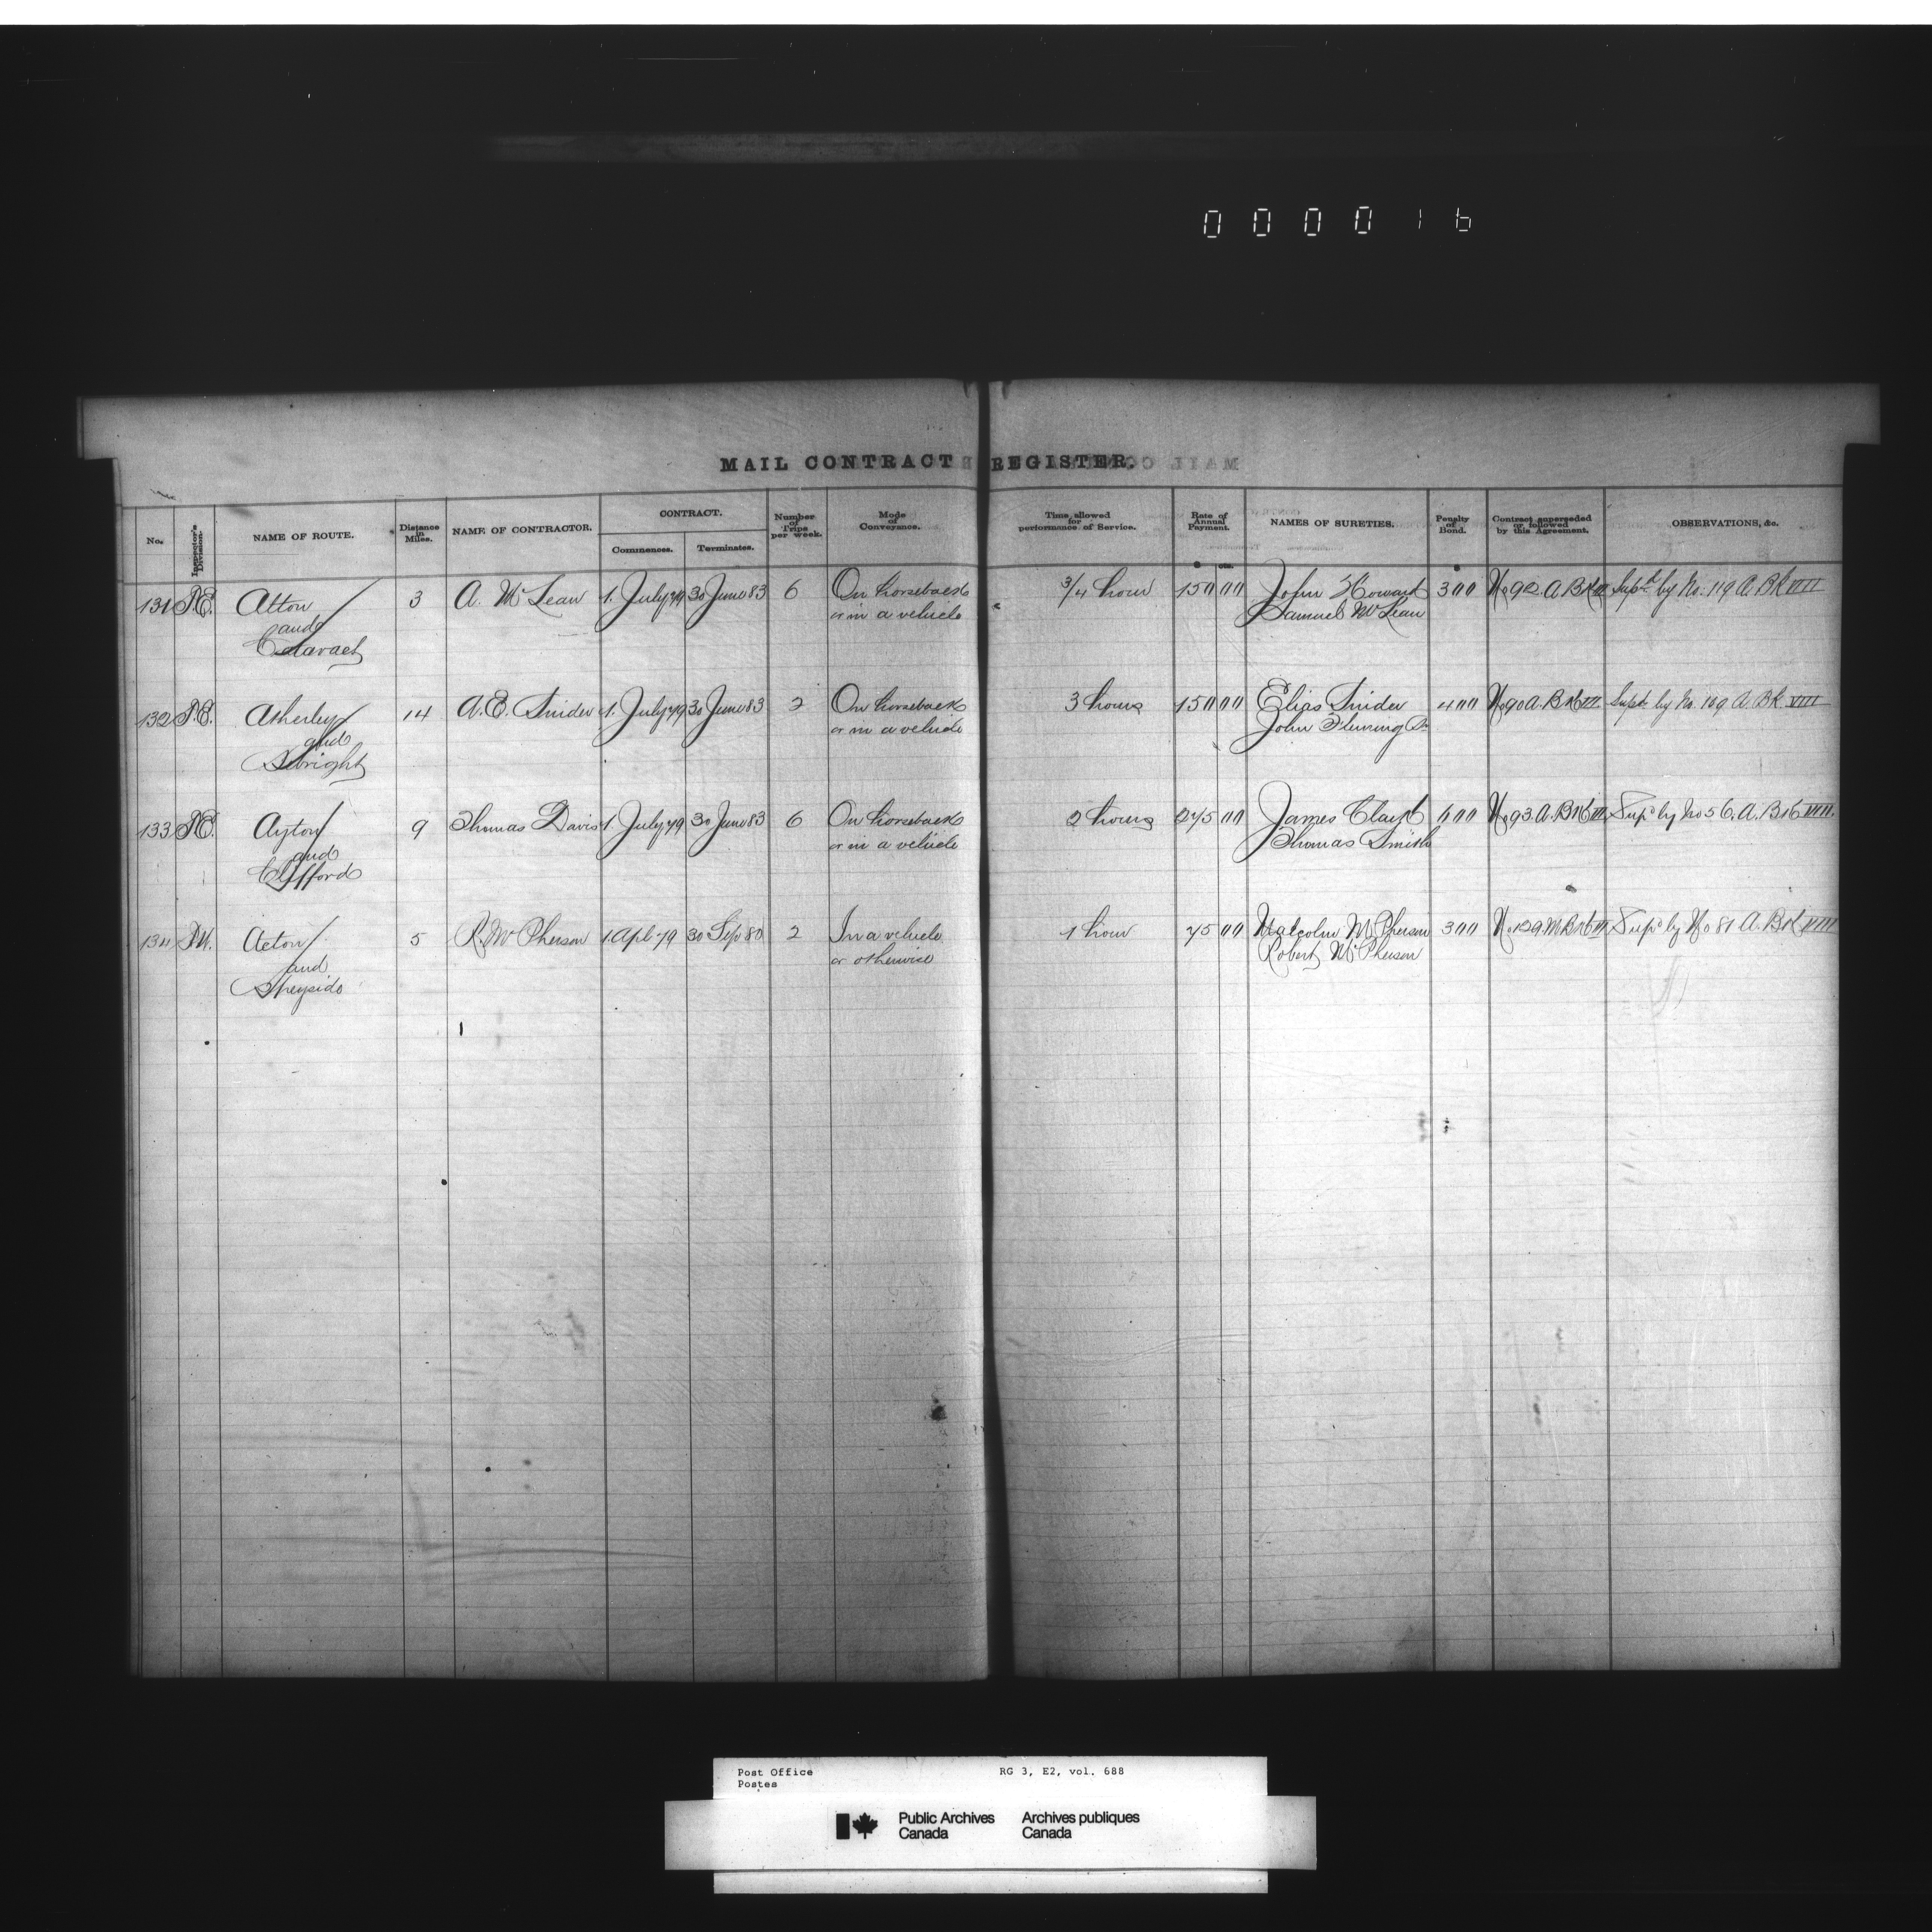 0 0 0 0 1 6
MAIL CONTRACT REGISTER.
No. Inspector's Division. NAME OF ROUTE. Distance in Miles. NAME OF CONTRACTOR. CONTRACT. Commences. Terminates. Number of Trips per week. Mode of Conveyance. Time allowed for performance of Service. Rate of Annual Payment. NAMES OF SURETIES. Penalty of Bond. Contract superseded or followed by this Agreement. OBSERVATIONS, &c.
$ cts. $
131 Alton 3 A. McLean 1. July 79 30 June 83 6 On horseback 3/4 hour 150 00 John Howard 300 No 92. A. Bk VII Supd by No. 119 A. Bk VIII
and or in a vehicle Samuel McLean
Cataract
132 Atherley 14 A. E. Snider 1. July 79 30 June 83 2 On horseback 3 hours 150 00 Elias Snider 400 No 90 A. Bk VII Supd by No. 109 A. Bk VIII
and or in a vehicle John Fleming Sr
Sebright
133 Ayton 9 Thomas Davis 1. July 79 30 June 83 6 On horseback 2 hours 275 00 James Clayt 600 No 93. A. Bk VII Supd by No 56. A. Bk VIII.
and or in a vehicle Thomas Smith
Clifford
134 Acton 5 R. McPherson 1. Apl 79 30 Sep 80 2 In a vehicle 1 hour 75 00 Malcolm McPherson 300 No 129. M. Bk VII Supd by No 81 A. Bk VIII
and or otherwise Robert McPherson
Speyside
Post Office RG 3, E2, vol. 688
Postes
Public Archives Archives publiques
Canada Canada